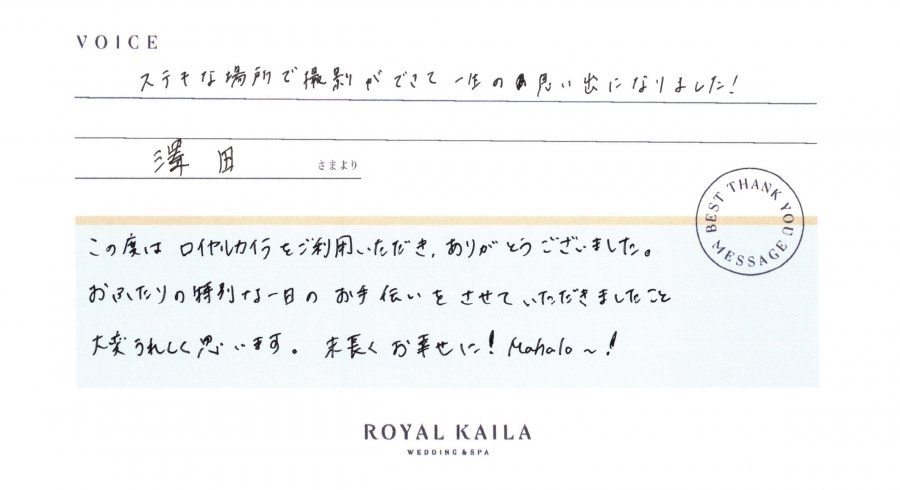 VOICE
ステキな場所で撮影ができて一生の思い出になりました!
澤田 さまより
BEST THANK YOU MESSAGE
この度はロイヤルカイラをご利用いただき、ありがとうございました。
おふたりの特別な一日のお手伝いをさせていただきましたこと
大変うれしく思います。末長くお幸せに!Mahalo〜!
ROYAL KAILA
WEDDING & SPA